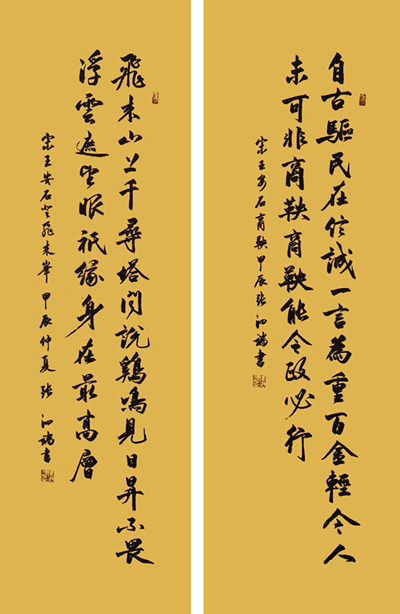 自古驅民在信誠一言為重百金輕今人
未可非商鞅商鞅能令政必行
宋王安石商鞅甲辰張泗書
飛來山上千尋塔聞說鷄鳴見日昇不畏
浮雲遮望眼祇緣身在最高層
宋王安石登飛來峯 甲辰仲夏 張泗書